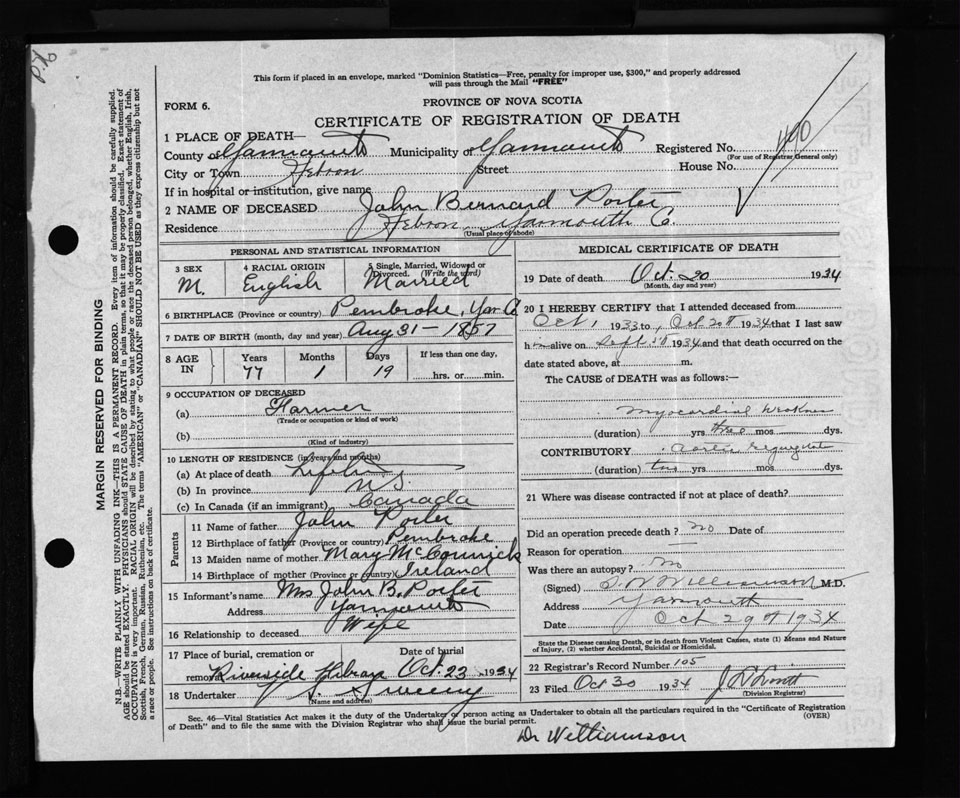 This form if placed in an envelope, marked "Dominion Statistics—Free, penalty for improper use, $300," and properly addressed
will pass through the Mail "FREE"
FORM 6.
PROVINCE OF NOVA SCOTIA
CERTIFICATE OF REGISTRATION OF DEATH
1 PLACE OF DEATH—
County of Yarmouth Municipality of Yarmouth Registered No. 490
(For use of Registrar General only)
City or Town Hebron Street House No.
If in hospital or institution, give name
2 NAME OF DECEASED John Bernard Porter
Residence Hebron Yarmouth C.
(Usual place of abode)
PERSONAL AND STATISTICAL INFORMATION
3 SEX M.
4 RACIAL ORIGIN English
5 Single, Married, Widowed or Divorced. (Write the word) Married
6 BIRTHPLACE (Province or country) Pembroke, Yar Co
7 DATE OF BIRTH (month, day and year) Aug 31 - 1857
8 AGE IN Years 77 Months 1 Days 19 If less than one day, hrs. or min.
9 OCCUPATION OF DECEASED
(a) Farmer
(Trade or occupation or kind of work)
(b)
(Kind of industry)
10 LENGTH OF RESIDENCE (in years and months)
(a) At place of death Lifetime
(b) In province N.S.
(c) In Canada (if an immigrant) Canada
Parents
11 Name of father John Porter
12 Birthplace of father (Province or country) Pembroke
13 Maiden name of mother Mary McCormick
14 Birthplace of mother (Province or country) Ireland
15 Informant's name Mrs John B. Porter
Address Yarmouth
16 Relationship to deceased Wife
17 Place of burial, cremation or removal Riverside Hebron Date of burial Oct. 23 1934
18 Undertaker Sweeny
(Name and address)
MEDICAL CERTIFICATE OF DEATH
19 Date of death Oct. 20 1934
(Month, day and year)
20 I HEREBY CERTIFY that I attended deceased from
Oct 1 1933 to Oct 20th 1934 that I last saw
h alive on Sept. 1934 and that death occurred on the
date stated above, at m.
The CAUSE of DEATH was as follows:—
Myocardial weakness
(duration) yrs three mos dys.
CONTRIBUTORY Aortic regurgitate
(duration) two yrs mos dys.
21 Where was disease contracted if not at place of death?
Did an operation precede death? no Date of
Reason for operation
Was there an autopsy? No
(Signed) Williamson M.D.
Address Yarmouth
Date Oct 29th 1934
State the Disease causing Death, or in death from Violent Causes, state (1) Means and Nature
of Injury, (2) whether Accidental, Suicidal or Homicidal.
22 Registrar's Record Number 105
23 Filed Oct 30 1934
(Division Registrar)
Sec. 46—Vital Statistics Act makes it the duty of the Undertaker or person acting as Undertaker to obtain all the particulars required in the "Certificate of Registration
of Death" and to file the same with the Division Registrar who shall issue the burial permit.
(OVER)
Dr Williamson
MARGIN RESERVED FOR BINDING
N.B.—WRITE PLAINLY WITH UNFADING INK—THIS IS A PERMANENT RECORD. Every item of information should be carefully supplied.
AGE should be stated EXACTLY. PHYSICIANS should STATE CAUSE OF DEATH in plain terms, so that it may be properly classified. Exact statement of
OCCUPATION is very important. RACIAL ORIGIN will be described by stating to what people or race the deceased person belonged, whether English, Irish,
Scottish, French, German, Russian, Ruthenian, etc. The terms "AMERICAN" or "CANADIAN" SHOULD NOT BE USED as they express citizenship but not
a race or people. See instructions on back of certificate.